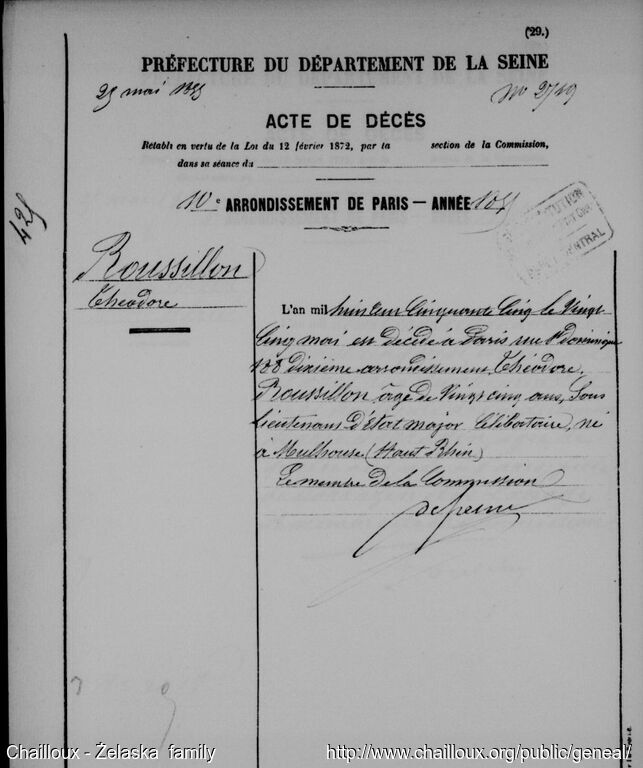 (29.)
PRÉFECTURE DU DÉPARTEMENT DE LA SEINE
25 mai 1855
No 2749
ACTE DE DÉCÈS
Rétabli en vertu de la Loi du 12 février 1872, par la section de la Commission,
dans sa séance du
10e ARRONDISSEMENT DE PARIS — ANNÉE 1855
CENTRAL
425
Roussillon
Théodore
L'an mil huit cent cinquante cinq le vingt
cinq mai est décédé à Paris rue St dominique
108 dixième arrondissement Théodore
Roussillon âgé de vingt cinq ans, Sous
lieutenant d'état major célibataire, né
à Mulhouse (Haut Rhin)
Le membre de la Commission
Chailloux - Želaska family
http://www.chailloux.org/public/geneal/